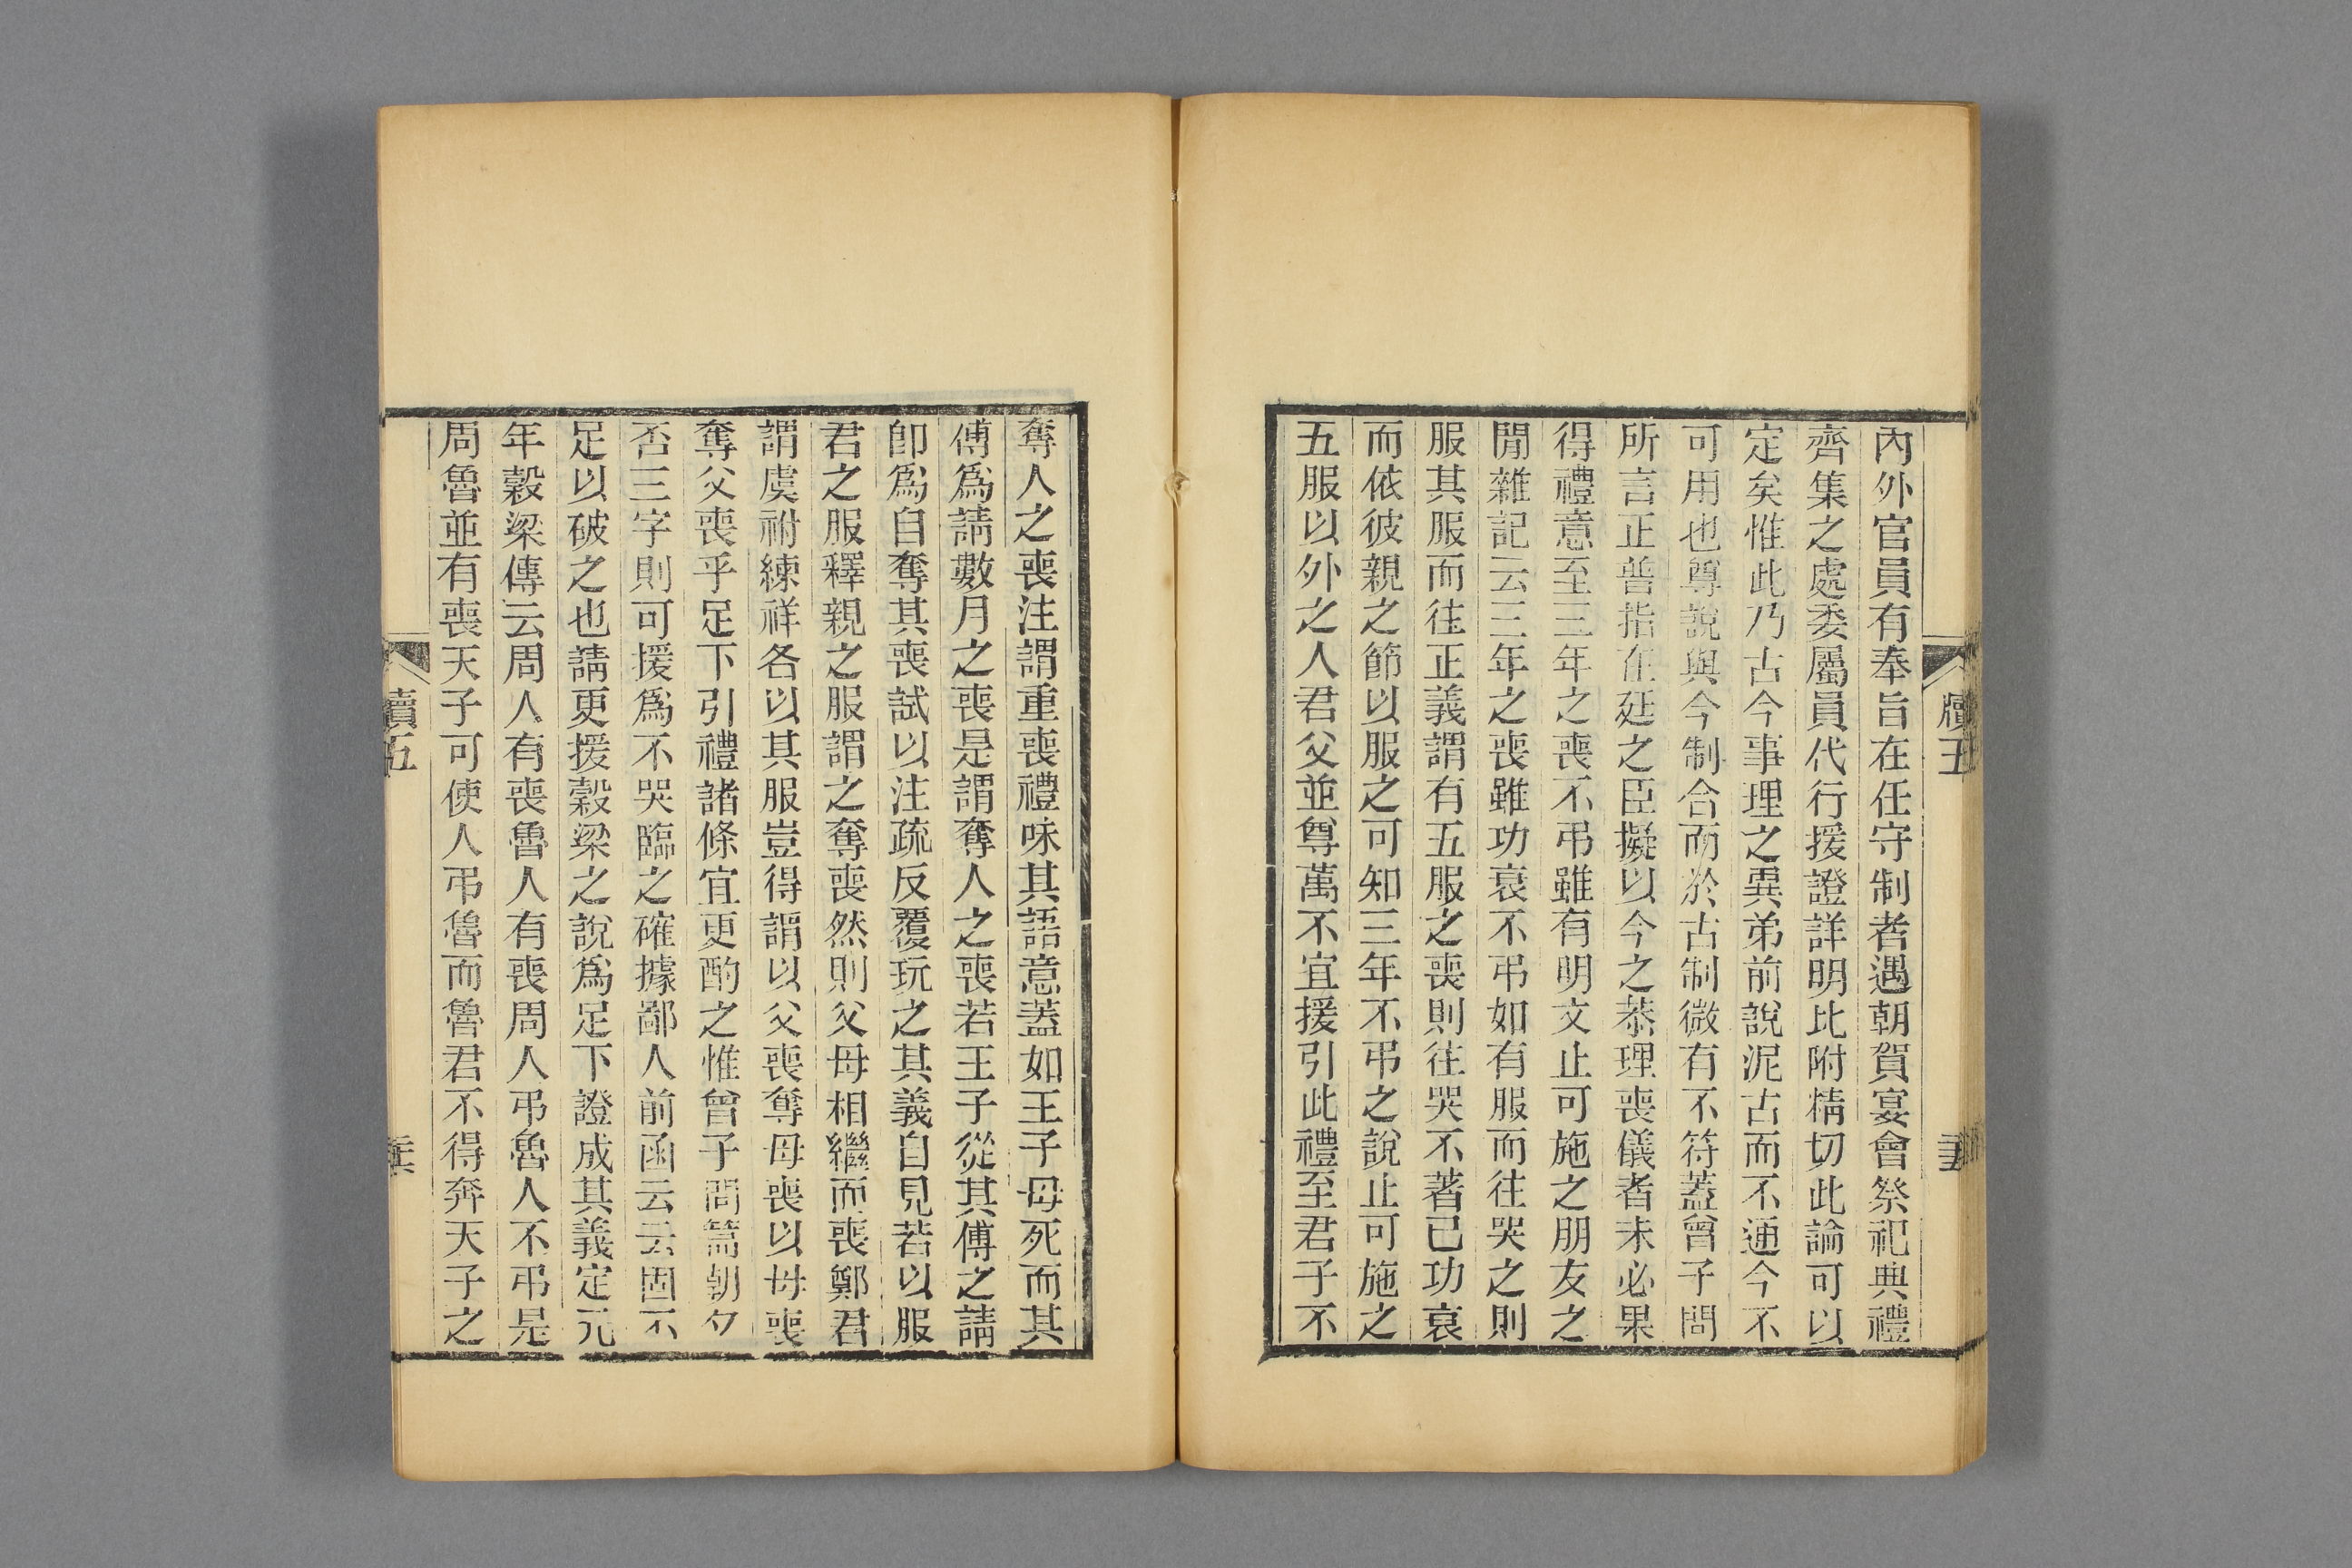 內外官員有奉旨在任守制者遇朝賀宴會祭祀典禮
齊集之處委屬員代行援證詳明比附精切此論可以
定矣惟此乃古今事理之異弟前說泥古而不通今不
可用也尊說與今制合而於古制微有不符蓋曾子問
所言正普指在廷之臣擬以今之恭理喪儀者未必果
得禮意至三年之喪不弔雖有明文止可施之朋友之
閒雜記云三年之喪雖功衰不弔如有服而往哭之則
服其服而往正義謂有五服之喪則往哭不著已功衰
而依彼親之節以服之可知三年不弔之說止可施之
五服以外之人君父並尊萬不宜援引此禮至君子不
奪人之喪注謂重喪禮味其語意蓋如王子母死而其
傅為請數月之喪是謂奪人之喪若王子從其傅之請
卽為自奪其喪試以注疏反覆玩之其義自見若以服
君之服釋親之服謂之奪喪然則父母相繼而喪鄭君
謂虞祔練祥各以其服豈得謂以父喪奪母喪以母喪
奪父喪乎足下引禮諸條宜更酌之惟曾子問篇朝夕
否三字則可援為不哭臨之確據鄙人前函云云固不
足以破之也請更援穀梁之說為足下證成其義定元
年穀梁傳云周人有喪魯人有喪周人弔魯人不弔是
周魯並有喪天子可使人弔魯而魯君不得奔天子之
牘五
牘五